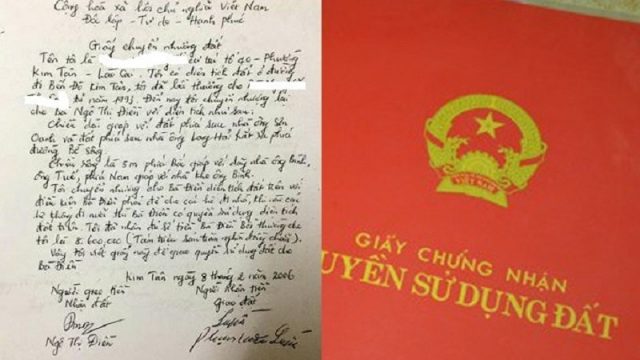 Cộng hòa xã hội chủ nghĩa Việt Nam
Độc lập - Tự do - Hạnh phúc
Giấy chuyển nhượng đất
Tên tôi là cư trú tổ 40 - Phường
Kim Tân - Lào Cai. Tôi có diện tích đất ở đường
đi Bến Đá Kim Tân, tôi đã bồi thường cho
từ năm 1993. Đến nay tôi chuyển nhượng lại
cho bà Ngô Thị Điền với diện tích như sau:
Chiều dài giáp với đất phía sau nhà ông Sên
Oanh và đất phía sau nhà ông Long Hải kắt ra phía
đường Bê
Chiều rộng là 5m phía Bắc giáp với dãy nhà ông Bình,
ông Tuế, phía Nam giáp với nhà kho ông Bình.
Tôi chuyển nhượng cho Bà Điền diện tích đất trên với
điều kiện Bà Điền phải để cho cái hồ đi nhờ, khi nào cái
hồ không đi nuôi thì Bà Điền có quyền sử dụng diện tích
đất trên. Tôi đã nhận đủ số tiền Bà Điền bồi thường cho
tôi là 8.600.000 (Tám triệu sáu trăm nghìn đồng chẵn).
Vậy tôi viết giấy này để giao quyền sử dụng đất cho
Bà Điền
Kim Tân ngày 8 tháng 2 năm 2006
Người giao tiền Người nhận tiền
Nhận đất Giao đất
Ngô Thị Điền
VIỆT NAM
GIẤY CHỨNG NHẬN
UYỀN SỬ DỤNG ĐẤT